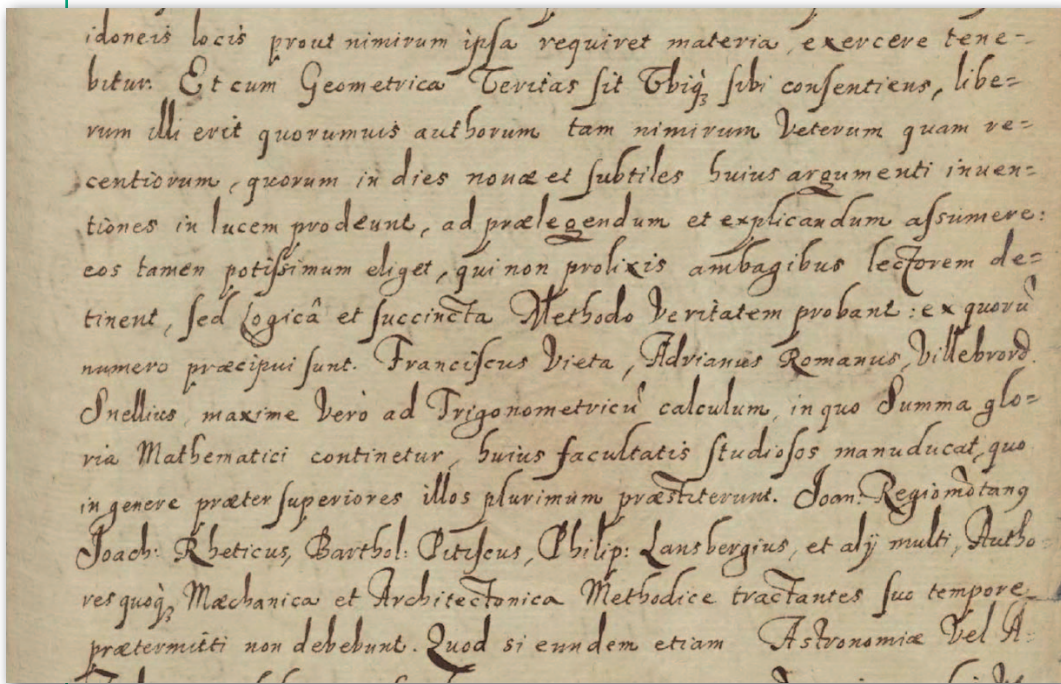 idoneis locis prout nimirum ipsa requiret materia, exercere tene-
bitur. Et cum Geometrica Veritas sit Vbiq3 sibi consentiens, libe=
rum illi erit quorumuis authorum tam nimirum Veterum quam re=
centiorum, quorum in dies nouæ et subtiles huius argumenti inuen=
tiones in lucem prodeunt, ad prælegendum et explicandum assumere:
eos tamen potissimum eliget, qui non prolixis ambagibus lectorem de=
tinent, sed Logicâ et succincta Methodo Veritatem probant: ex quorū
numero præcipui sunt. Franciscus Vieta, Adrianus Romanus, Villebrord.
Snellius, maxime Verò ad Trigonometricū calculum, in quo Summa glo=
ria Mathematici continetur, huius facultatis studiosos manuducat, quo
in genere præter superiores illos plurimum præstiterunt. Joan: Regiomōtang
Joach: Rheticus, Barthol: Pitiscus, Philip: Lansbergius, et alij multi, Autho=
res quoq3 Mæchanica et Architectonica Methodice tractantes suo tempore
prætermitti non debebunt. Quod si eundem etiam Astronomiæ Vel A=